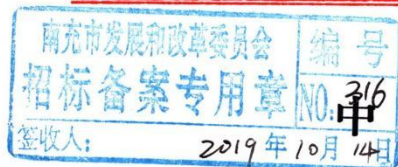 南充市发展和改革委员会
招标备案专用章
编 号
NO: 316
中
签收人: 2019 年 10 月 14 日